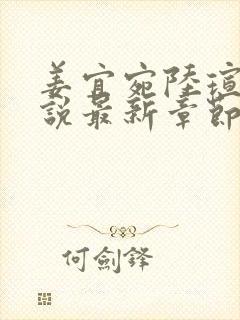 姜宜宛陸瑄
說最新章節
何劍鋒